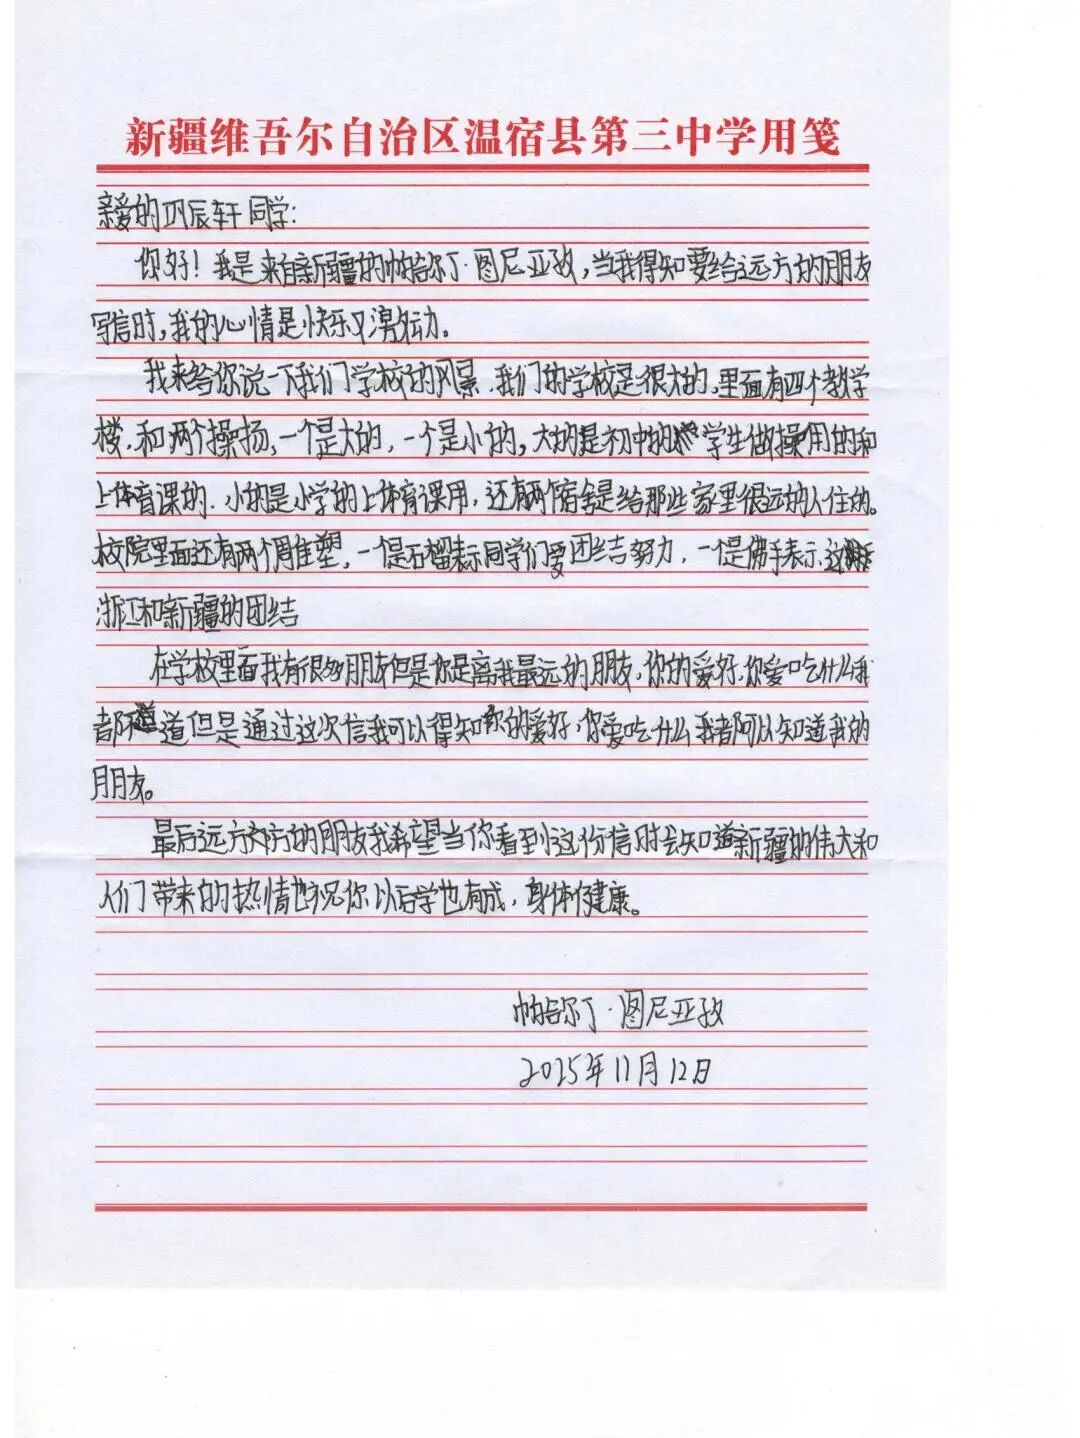 新疆维吾尔自治区温宿县第三中学用笺
亲爱的邓辰轩同学:
你好!我是来自新疆的帕哈尔丁·图尼亚孜,当我得知要给远方的朋友
写信时,我的心情是快乐又激动。
我来给你说一下我们学校的风景.我们的学校是很大的,里面有四个教学
楼.和两个操场,一个是大的,一个是小的,大的是初中的学生做操用的和
上体育课的.小的是小学的上体育课用,还有两个宿舍是给那些家里很远的人住的。
校院里面还有两个雕塑,一个是石榴表示同学们要团结努力,一个是佛手表示
浙江和新疆的团结
在学校里面我有很多朋友但是你是离我最远的朋友,你的爱好.你爱吃什么我
都不道但是通过这次信我可以得知你的爱好,你爱吃什么我都可以知道我的
朋友。
最后远方的朋友我希望当你看到这份信时会知道新疆的伟大和
人们带来的热情也祝你以后学也有成,身体健康。
帕哈尔丁·图尼亚孜
2025年11月12日